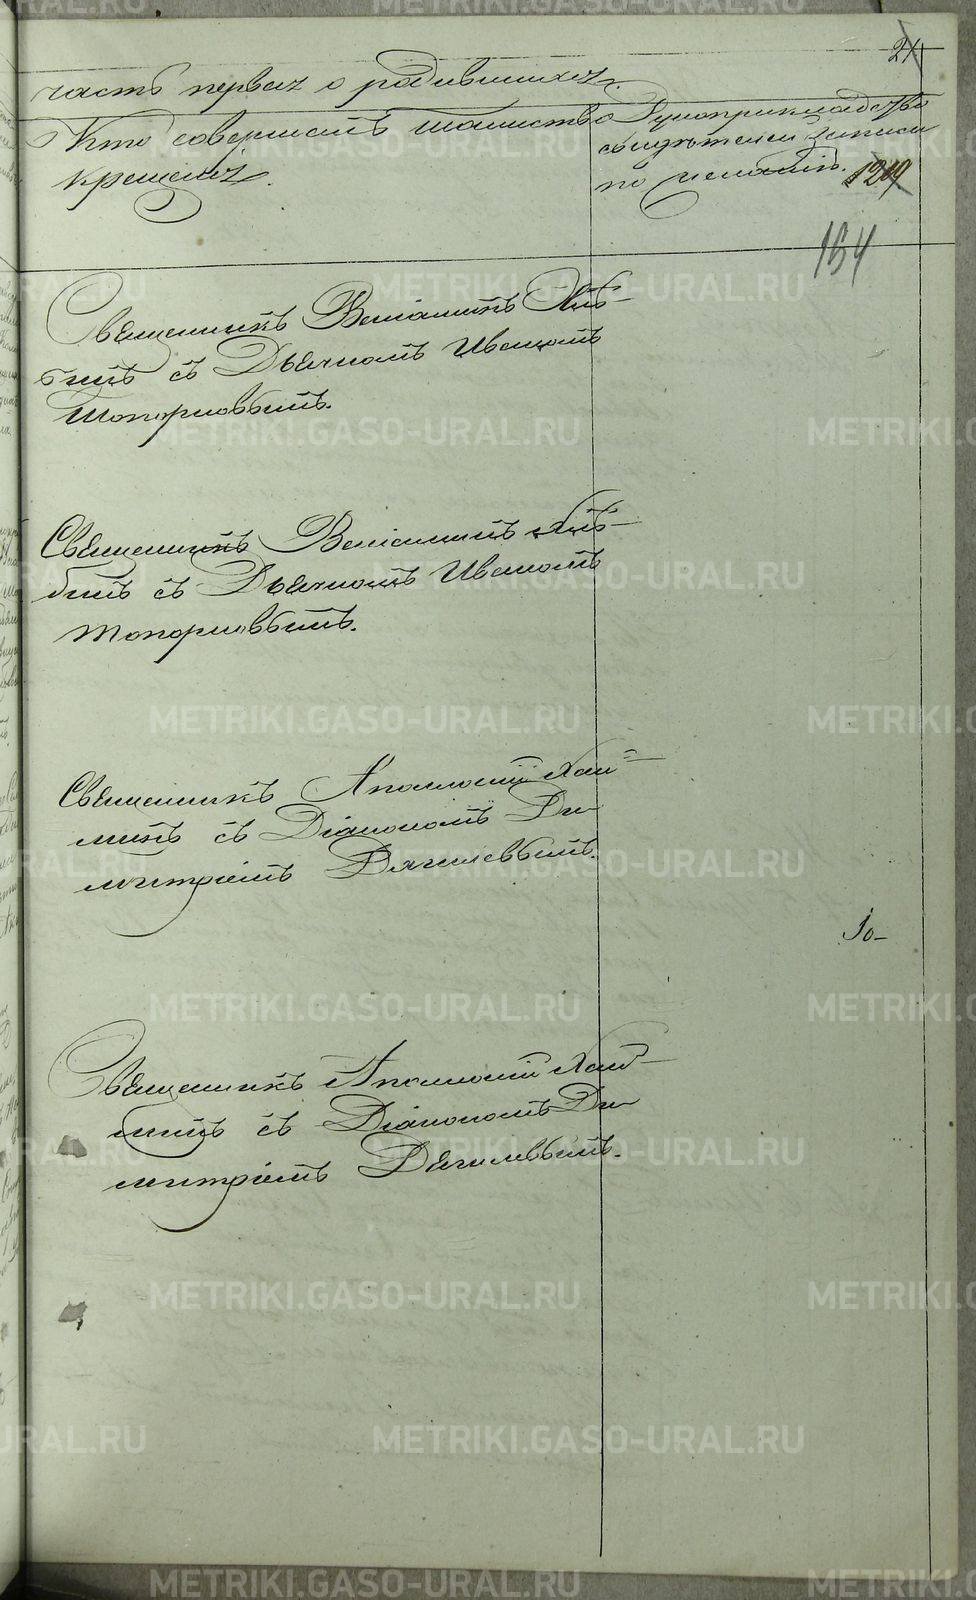 21
часть первая о родившихся.
Кто совершалъ таинство
крещенія.
Рукоприкладство
свидѣтелей записи
по желанію.
1219
164
Священникъ Веніаминъ Хлѣ-
бинъ съ Дьячкомъ Иваномъ
Топорковымъ.
Священникъ Веніаминъ Хлѣ-
бинъ съ Дьячкомъ Иваномъ
Топорковымъ.
Священникъ Аполлоній
съ Діакономъ Ди-
митріемъ Дягилевымъ.
10-
Священникъ Аполлоній
съ Діакономъ Ди-
митріемъ Дягилевымъ.
METRIKI.GASO-URAL.RU